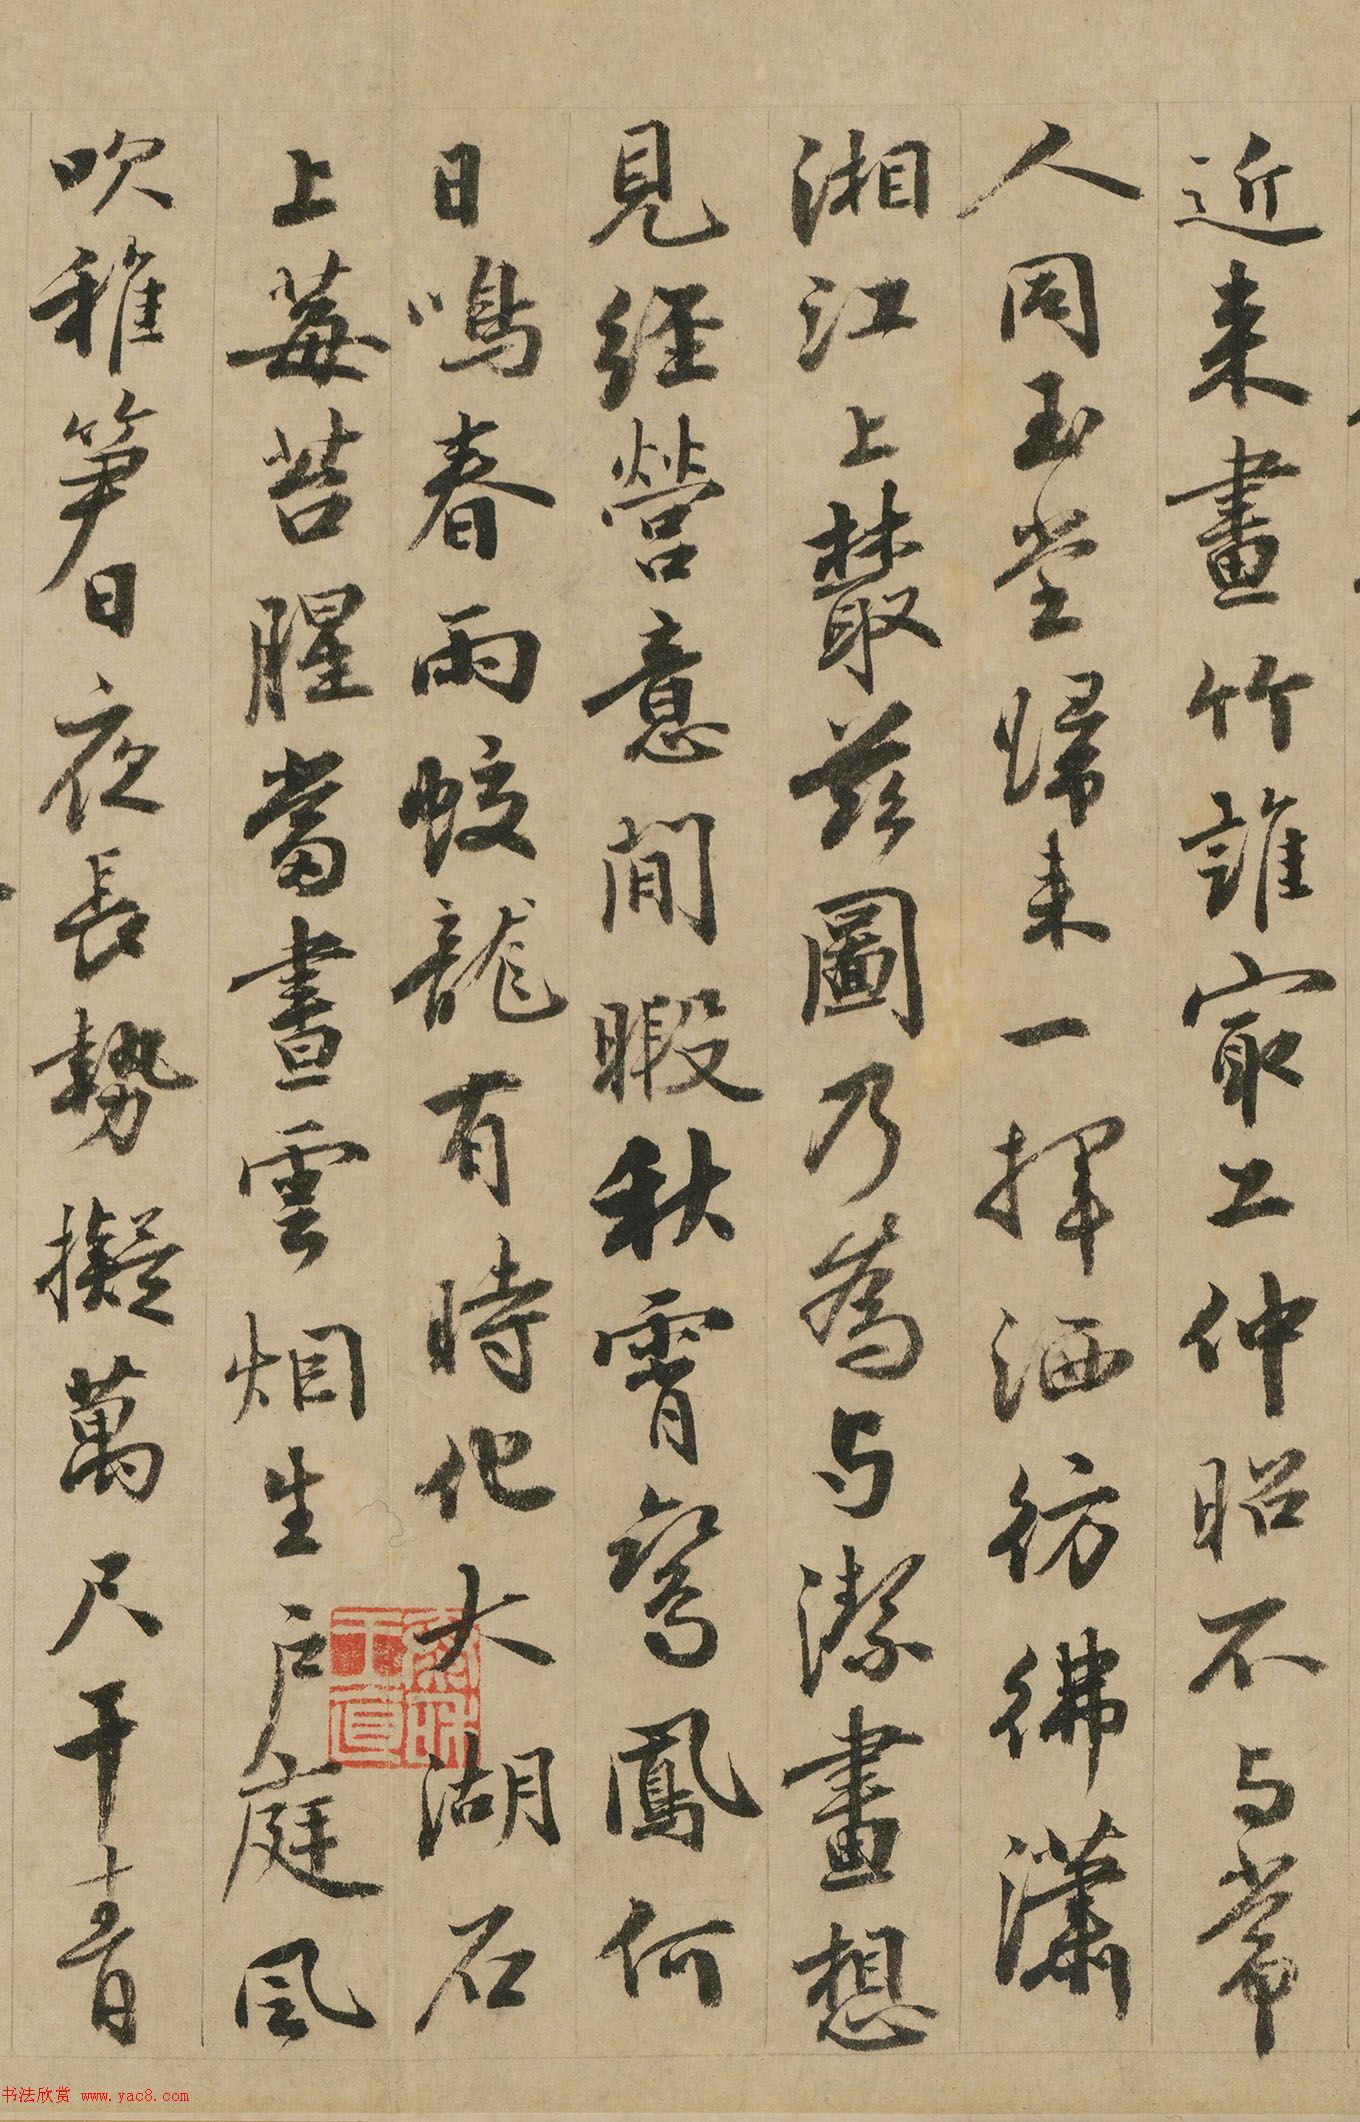 近来畫竹誰家最工仲昭不与常
人同玉堂歸来一揮洒彷彿瀟
湘江上叢茲圖乃為与潔畫想
見經營意閒暇秋霄鸞鳳何
日鳴春雨蛟龍有時化大湖石
上莓苔腥當晝雲烟生户庭風
吹稚笋日夜長勢擬萬尺干青
书法欣赏 www.yac8.com